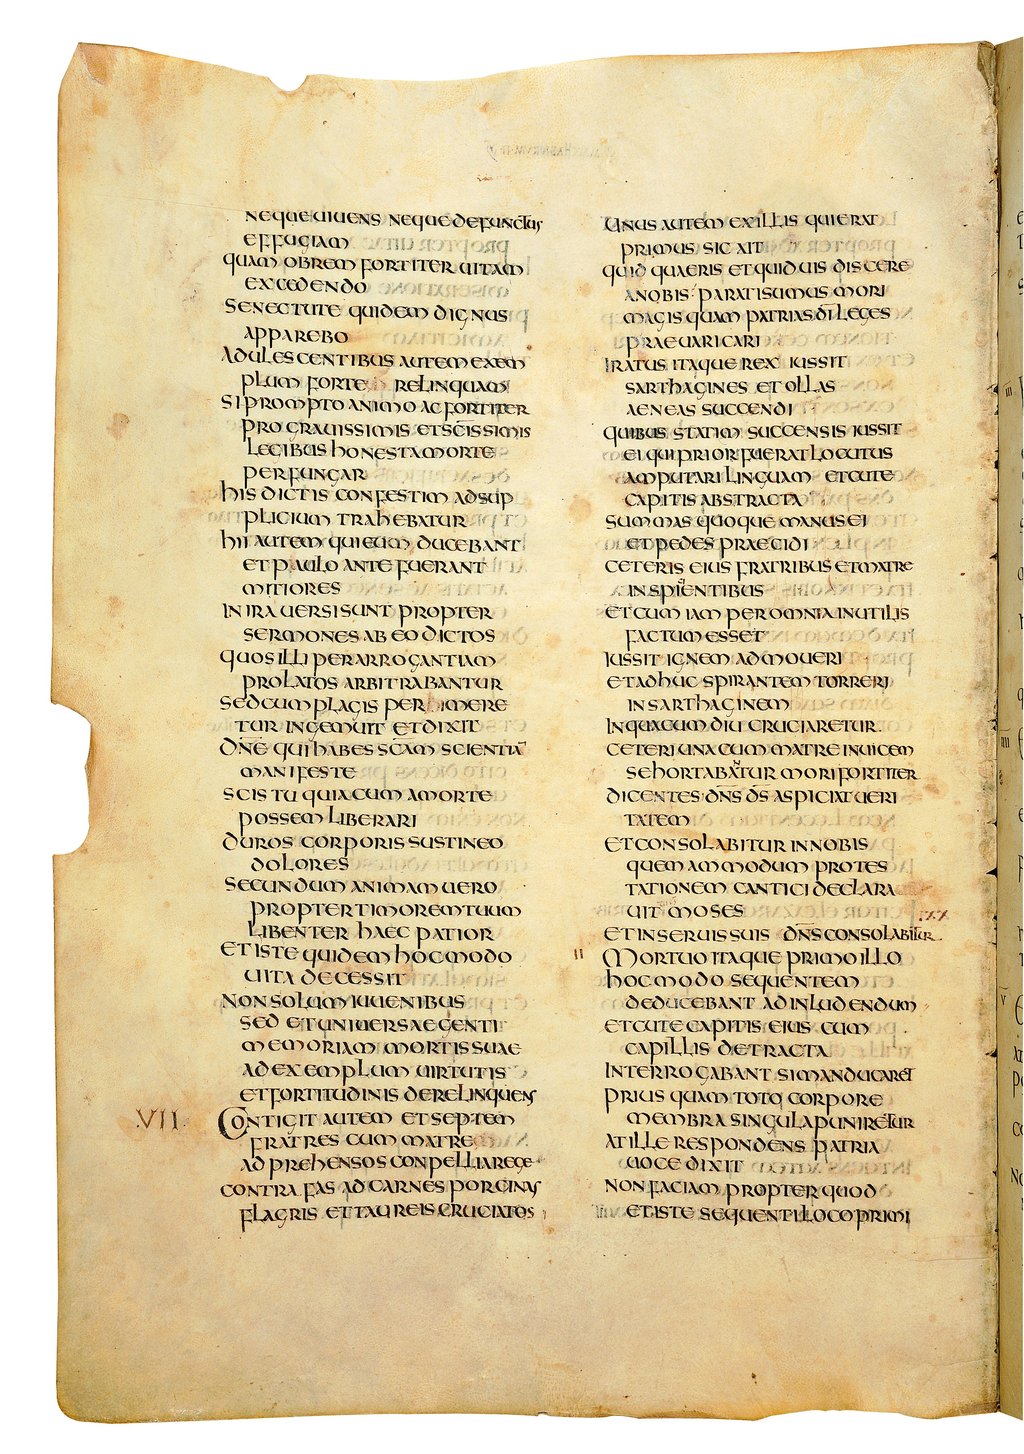 NEQUE UIUENS NEQUE DEFUNCTUS
EFFUGIAM
QUAM OBREM FORTITER UITAM
EXCEDENDO
SENECTUTE QUIDEM DIGNUS
APPAREBO
ADULESCENTIBUS AUTEM EXEM
PLUM FORTE RELINQUAM
SI PROMPTO ANIMO AC FORTITER
PRO GRAUISSIMIS ET SCISSIMIS
LEGIBUS HONESTA MORTE
PERFUNGAR
HIS DICTIS CONFESTIM AD SUP
PLICIUM TRAHEBATUR
HII AUTEM QUI EUM DUCEBANT
ET PAULO ANTE FUERANT
MITIORES
IN IRA UERSI SUNT PROPTER
SERMONES AB EO DICTOS
QUOS ILLI PER ARROGANTIAM
PROLATOS ARBITRABANTUR
SED CUM PLAGIS PERIMERE
TUR INGEMUIT ET DIXIT
DNE QUI HABES SCAM SCIENTIA
MANIFESTE
SCIS TU QUIA CUM A MORTE
POSSEM LIBERARI
DUROS CORPORIS SUSTINEO
DOLORES
SECUNDUM ANIMAM UERO
PROPTER TIMOREM TUUM
LIBENTER HAEC PATIOR
ET ISTE QUIDEM HOC MODO
UITA DECESSIT
NON SOLUM IUUENIBUS
SED ET UNIUERSAE GENTI
MEMORIAM MORTIS SUAE
AD EXEMPLUM UIRTUTIS
ET FORTITUDINIS DERELINQUENS
VII CONTIGIT AUTEM ET SEPTEM
FRATRES CUM MATRE
ADPREHENSOS CONPELLI A REGE
CONTRA FAS AD CARNES PORCINAS
FLAGRIS ET TAUREIS CRUCIATOS
UNUS AUTEM EX ILLIS QUI ERAT
PRIMUS SIC AIT
QUID QUAERIS ET QUID UIS DISCERE
A NOBIS PARATI SUMUS MORI
MAGIS QUAM PATRIAS DI LEGES
PRAEUARICARI
IRATUS ITAQUE REX IUSSIT
SARTHAGINES ET OLLAS
AENEAS SUCCENDI
QUIBUS STATIM SUCCENSIS IUSSIT
EI QUI PRIOR FUERAT LOCUTUS
AMPUTARI LINGUAM ET CUTE
CAPITIS ABSTRACTA
SUMMAS QUOQUE MANUS EI
ET PEDES PRAECIDI
CETERIS EIUS FRATRIBUS ET MATRE
INSPIENTIBUS
ET CUM IAM PER OMNIA INUTILIS
FACTUM ESSET
IUSSIT IGNEM ADMOUERI
ET ADHUC SPIRANTEM TORRERI
IN SARTHAGINEM
IN QUA CUM DIU CRUCIARETUR
CETERI UNA CUM MATRE INUICEM
SE HORTABATUR MORI FORTITER
DICENTES DNS DS ASPICIAT UERI
TATEM
ET CONSOLABITUR IN NOBIS
QUEM AMMODUM PROTES
TATIONEM CANTICI DECLARA
UIT MOSES
ET IN SERUIS SUIS DNS CONSOLABITUR
II MORTUO ITAQUE PRIMO ILLO
HOC MODO SEQUENTEM
DEDUCEBANT AD INLUDENDUM
ET CUTE CAPITIS EIUS CUM
CAPILLIS DETRACTA
INTERROGABANT SI MANDUCARET
PRIUS QUAM TOTO CORPORE
MEMBRA SINGULA PUNIRETUR
AT ILLE RESPONDENS PATRIA
UOCE DIXIT
NON FACIAM PROPTER QUOD
ET ISTE SEQUENTI LOCO PRIMI